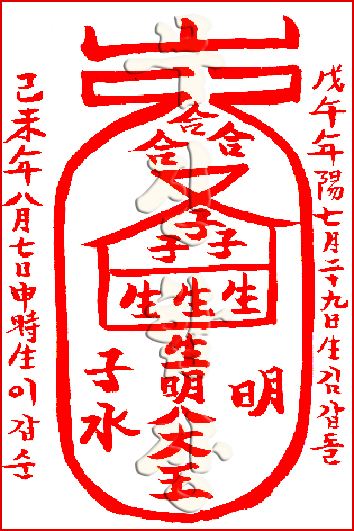 戊午年陽七月二十九日生김갑돌
合
合 合
子
子 子
生 生 生
生
明
八
大
王
明
子
水
己未年八月七日申時生이갑순